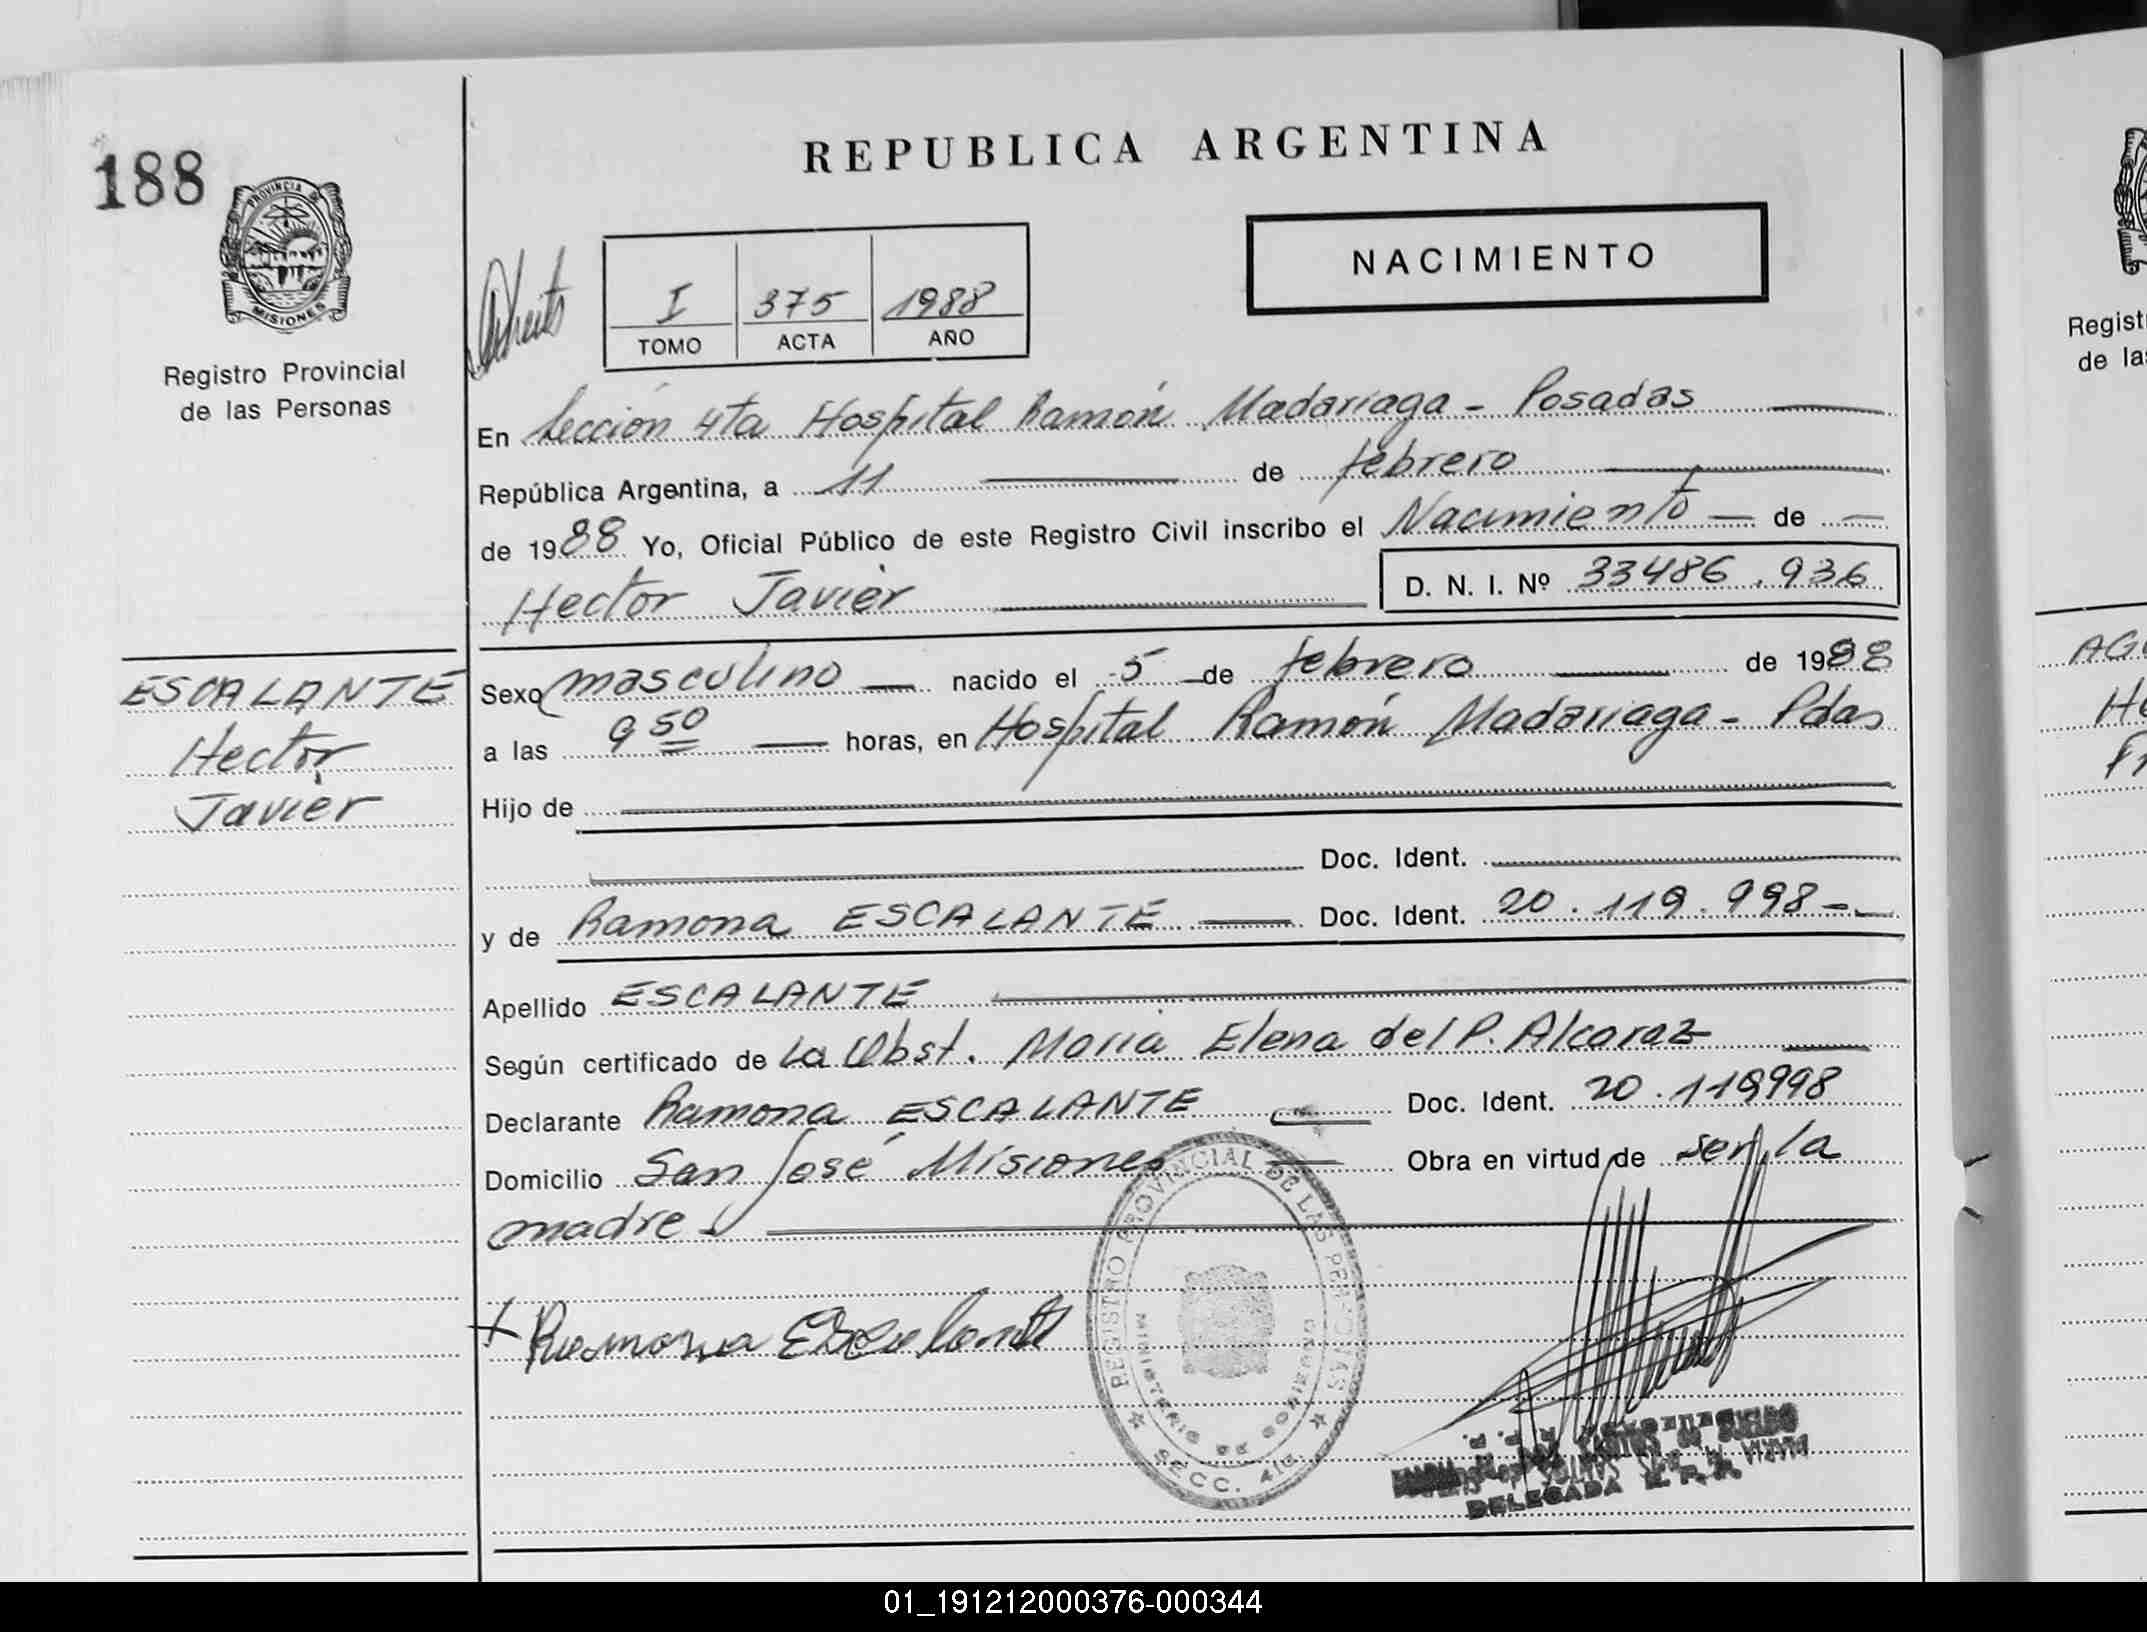 188
PROVINCIA DE
MISIONES
Registro Provincial
de las Personas
REPUBLICA ARGENTINA
NACIMIENTO
I 375 1988
TOMO ACTA AÑO
En Sección 4ta Hospital Ramón Madariaga - Posadas
República Argentina, a 11 de febrero
de 1988 Yo, Oficial Público de este Registro Civil inscribo el Nacimiento de
Hector Javier D. N. I. Nº 33486.936
ESCALANTE
Hector
Javier
Sexo masculino nacido el 5 de febrero de 1988
a las 9 50 horas, en Hospital Ramón Madariaga - Pdas
Hijo de
Doc. Ident.
y de Ramona ESCALANTE Doc. Ident. 20.119.998-
Apellido ESCALANTE
Según certificado de La Obst. Maria Elena del P. Alcaraz
Declarante Ramona ESCALANTE Doc. Ident. 20.119998
Domicilio San José Misiones Obra en virtud de ser la
madre
Ramona Escalante
REGISTRO PROVINCIAL DE LAS PERSONAS
MINISTERIO DE GOBIERNO
SECC. 4ta
DELEGADA
Regist
de la
AG
H
Fr
01_191212000376-000344